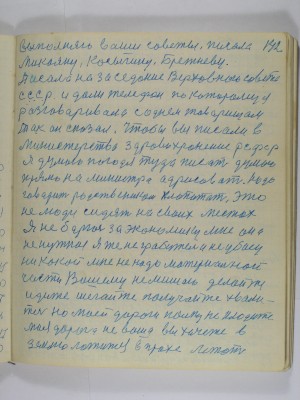 Выполняю ваши советы, писала 142
Микояну, Косыгину, Брежневу.
Писала на заседание Верховного совета
СССР и дали телефон по которому я
разговаривала с однем товарищам
так он сказал, Чтобы вы писали в
Министерство здровохронение РСФСР
Я думаю погодя туда писать думаю
прямо на министра адресовать. Надо
говорить родственную Это
не люди сидять на своих местах
Я не за экономику мне она
не нужна Я же не зработею и не убаею
никокой мне не надо материальной
части Вашему не мешаю делать
идите шегайте получайте хвали-
те но моей дороги палку не кладите
моя дорога не ваша вы хочете в
землю ложится в прахе лежать